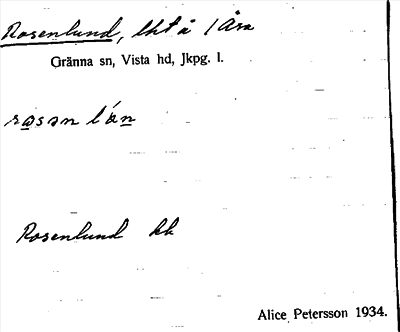 Rosenlund, lht å 1 Åsa
Gränna sn, Vista hd, Jkpg. l.
rosən l'án
Rosenlund hk
Alice Petersson 1934.